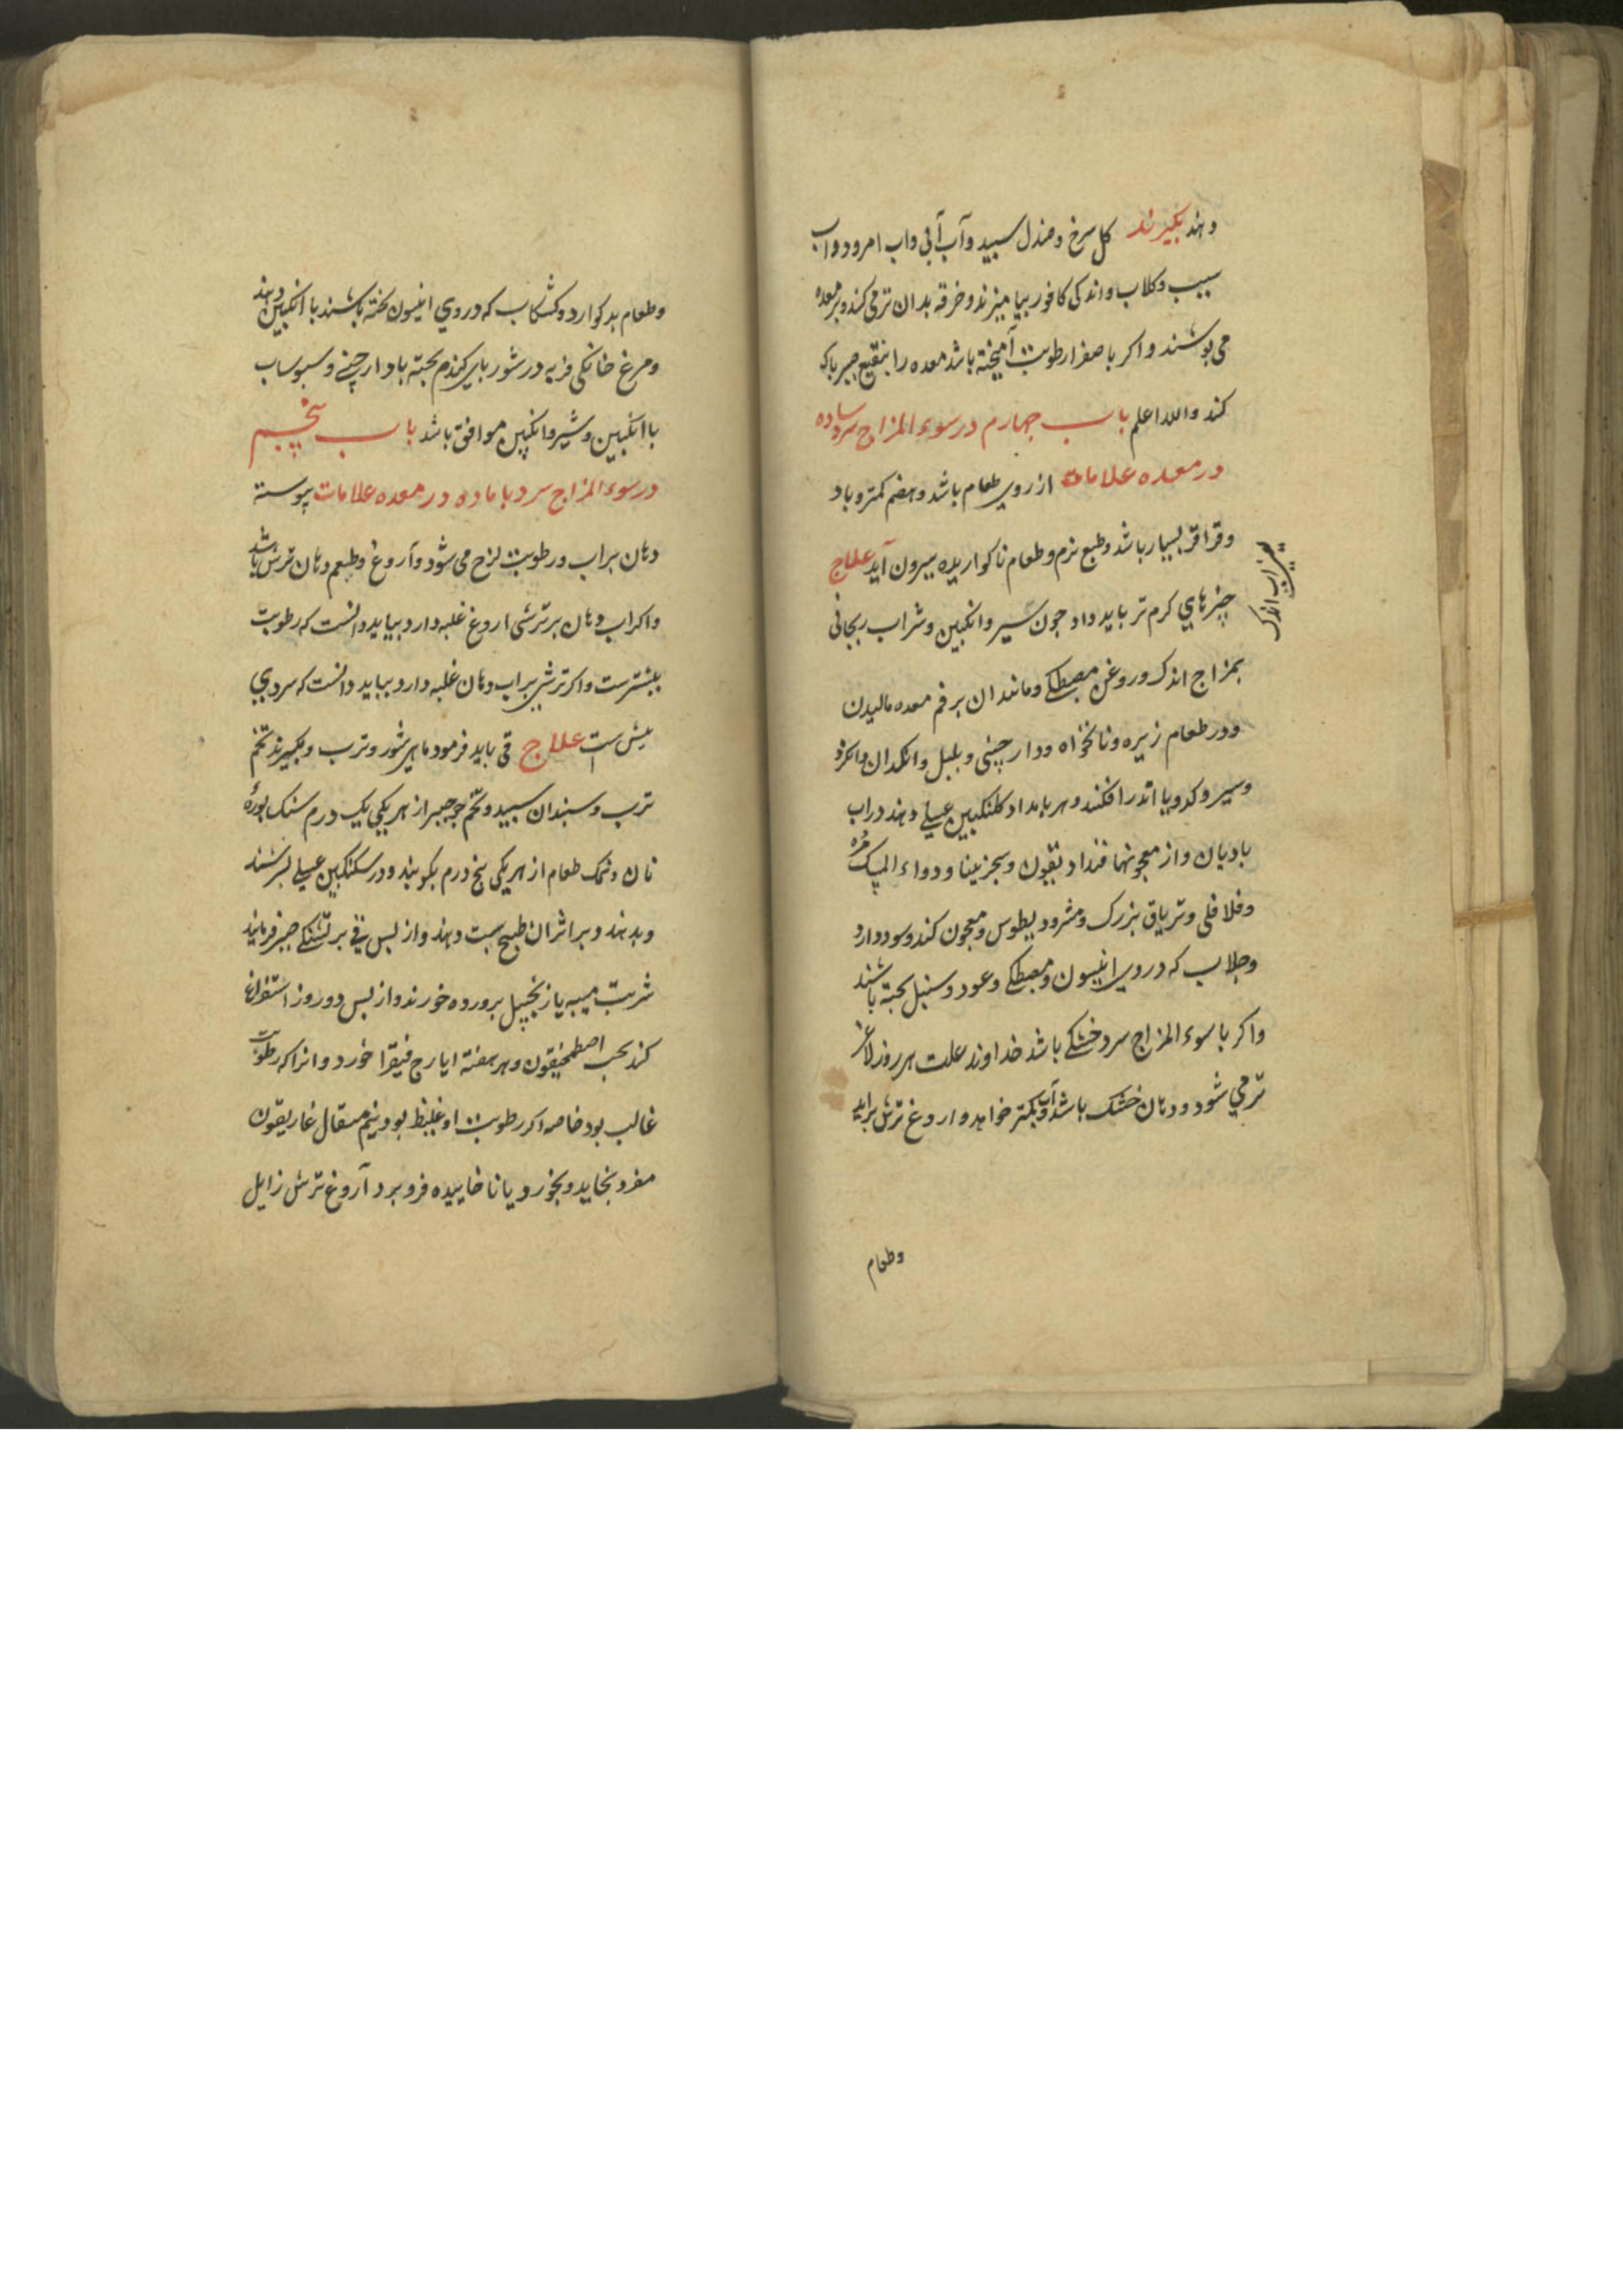 دهند بکیرند کل سرخ و صندل سبید و آب آبی و اب امرود و اب
سیب و کلاب و اندکی کافور بیامیزند و خرقه بدان تر می کنند و بر معده
می پوشند و اکر با صفرا رطوبت آمیخته باشد معده را بنقیع صبر پاک
کند والله اعلم باب جهارم در سوء المزاج سرد ساده
در معده علامات ارزوی طعام باشد و هضم کمتر و باد
و قراقر بسیار باشد و طبع نرم و طعام ناکواریده بیرون آید علاج
چیزهای کرم تر باید داد جون سیر و انکبین و شراب ریحانی
بمزاج اندک و روغن مصطکی و مانند ان بر فم معده مالیدن
و در طعام زیره و نانخواه و دار چینی و بلبل و انکدان و
و سیر و کرویا اندر افکنند و هر بامداد کلنکبین عسلی دهند در اب
بادیان و از معجونها قندادیقون و سجزینا و دواء المسک مره
و فلافلی و تریاق بزرک و مثرودیطوس و معجون کند و سود دارد
و جلاب که در وی انیسون و مصطکی و عود و سنبل بخته باشند
و اکر با سوء المزاج سرد خشکی باشد خداوند علت هر روز لاغر
تر می شود و دهان خشک باشد و آب کمتر خواهد و اروغ ترش براید
یعنی اب اندک
وطعام
و طعام بد کوارد و کشکاب که در وی انیسون بخته باشند با انکبین دهند
و مرغ خانکی فربه در شوربای کندم بخته با دار چینی و سبوساب
با انکبین و شیر و انکبین موافق باشد باب پنجم
در سوء المزاج سرد با ماده در معده علامات پیوسته
دهان بر اب و رطوبت لزج می شود و آروغ و طعم دهان ترش باشد
و اکر اب دهان بر ترشی اروغ غلبه دارد بباید دانست که رطوبت
بیشترست و اکر ترشی بر اب دهان غلبه دارد بباید دانست که سردی
بیش است علاج قی باید فرمود ماهی شور و ترب و بکیرند تخم
ترب و سبندان سبید و تخم جرجیر از هر یکی یک درم سنک بوره
نان و نمک طعام از هر یکی پنج درم بکوبند و در سکنکبین عسلی بسرشند
و بدهند و بر اثر ان طبیخ شبت دهند و از بس قی بر تشنکی صبر فرمایند
شربت میبه یا زنجبیل برورده خورند و از بس دو روز استفراغ
کند بحب اصطمخیقون و هر هفته ایارج فیقرا خورد و انرا که رطوبت
غالب بود خاصه اکر رطوبت او غلیظ بود نیم مثقال غاریقون
مفرد بخاید و بخورد یا نا خاییده فرو برد آروغ ترش زایل